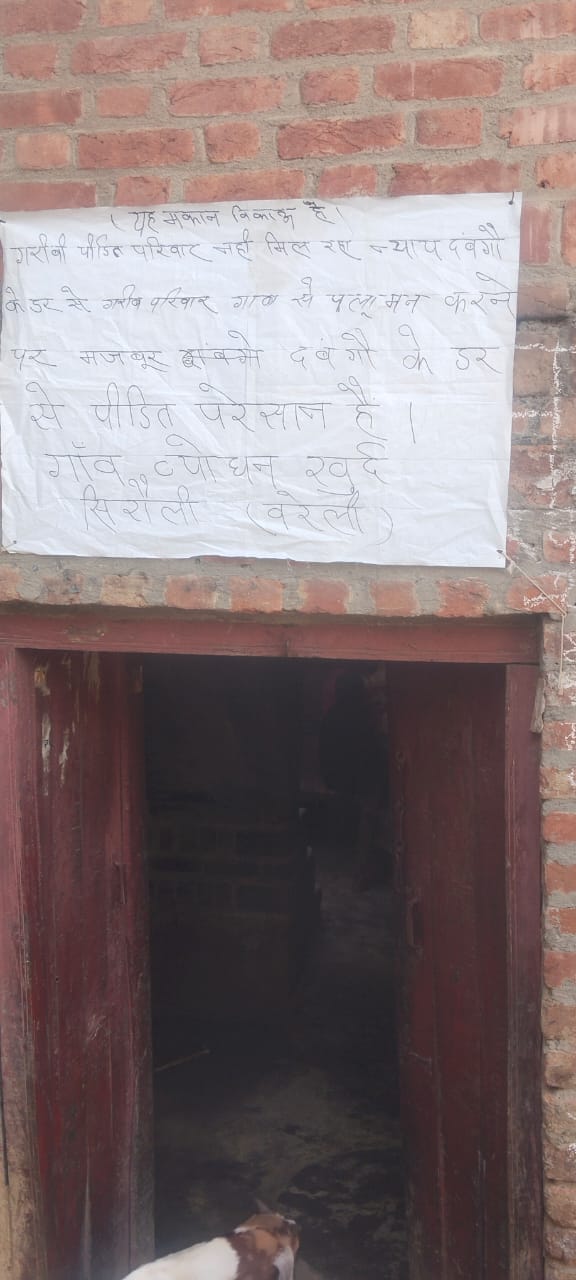 ( यह मकान विकाऊ है ।
गरीवी पीडित परिवार नही मिल रहा न्याय दंबगौ
के डर से गरीव परिवार गाव से पलामन करने
पर मजबूर दंबगौ के डर
से पीडित परेसान है ।
गाँव व्योधन खुर्द
सिरौली (वरेली)